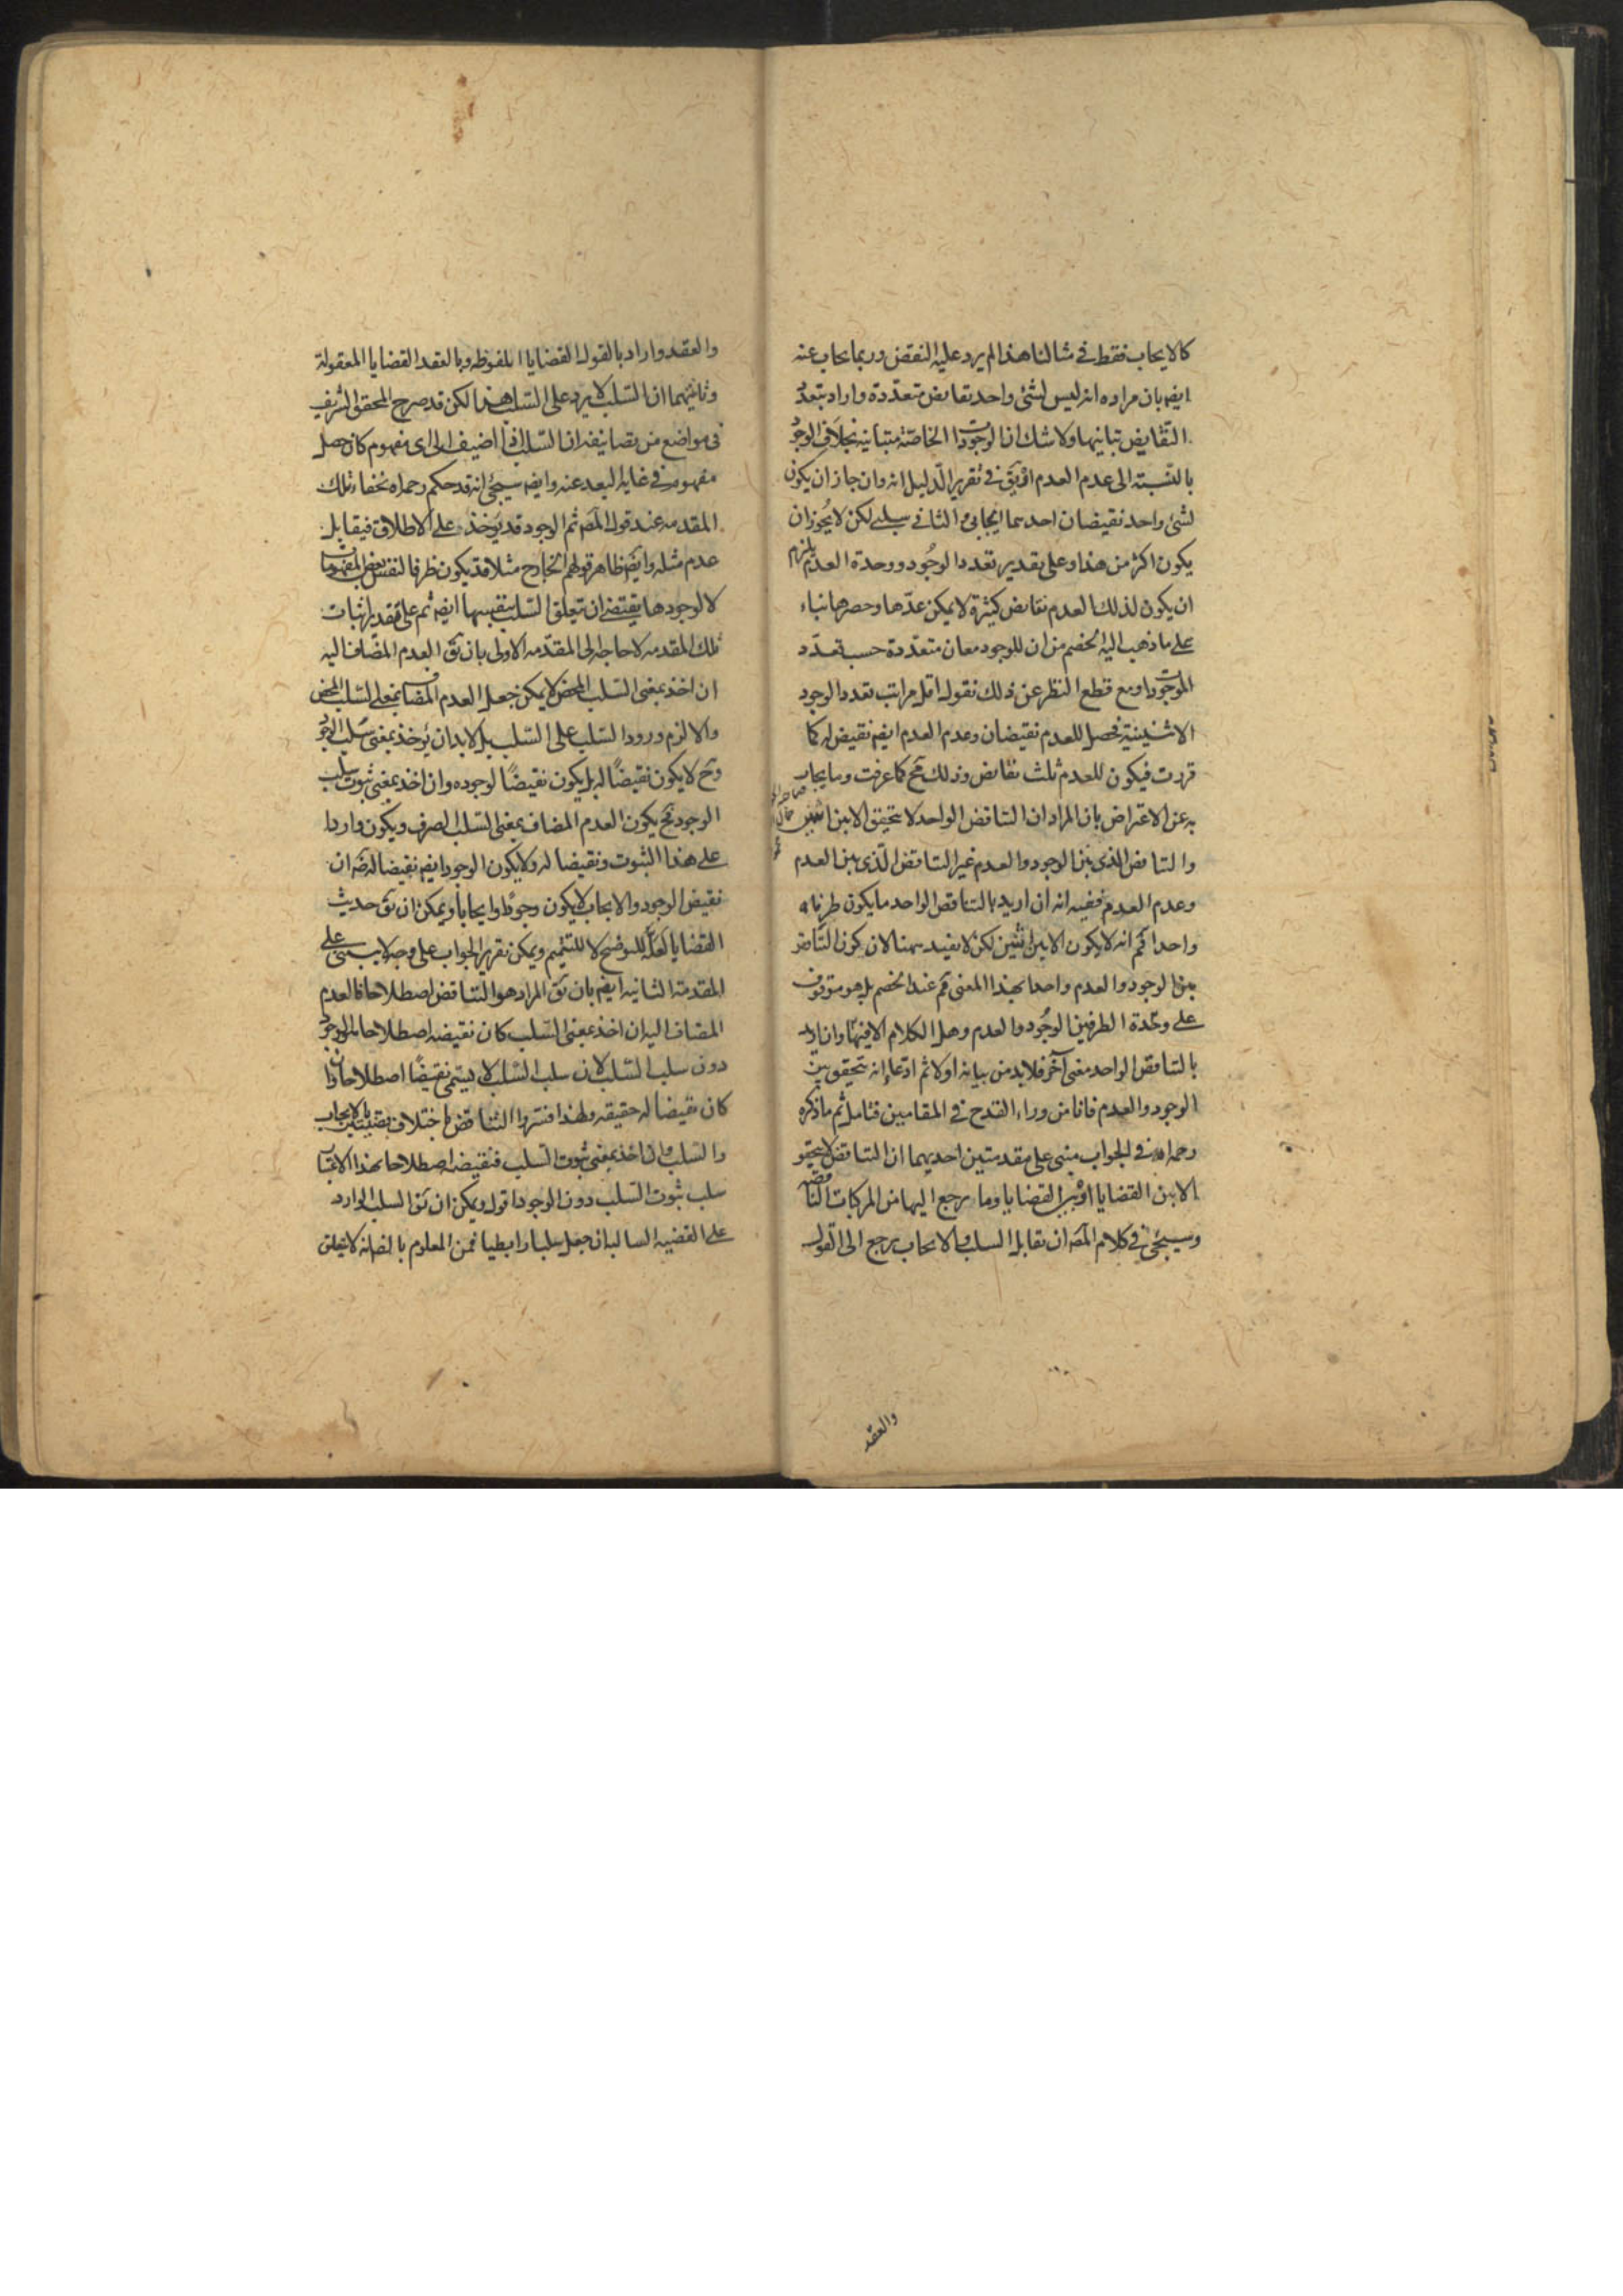 كالايجاب فقط في مثالنا هذا لم يرد عليه النقض وربما يجاب عنه
ايضه بان مراده انه ليس لشئ واحد نقايض متعددة واراد بتعدد
النقايض تباينها ولا شك ان الوجودات الخاصة متباينة بخلاف الوجود
بالنسبة الى عدم العدم او يق في تقرير الدليل انه وان جاز ان يكون
لشئ واحد نقيضان احدهما ايجابي والثاني سلبي لكن لا يجوز ان
يكون اكثر من هذا وعلى تقدير تعدد الوجود ووحدة العدم يلزم
ان يكون لذلك العدم نقايض كثيرة لا يمكن عدها وحصرها بناء
على ما ذهب اليه الخصم من ان للوجود معان متعددة حسب تعدد
الموجودات ومع قطع النظر عن ذلك نقول اقل مراتب تعدد الوجود
الاثنينية فحصل للعدم نقيضان وعدم العدم ايضه نقيض له كما
قررت فيكون للعدم ثلث نقايض وذلك مح كما عرفت وما يجاب
به عن الاعتراض بان المراد ان التناقض الواحد لا يتحقق الا بين اثنين
والتناقض الذي بين الوجود والعدم غير التناقض الذي بين العدم
وعدم العدم ففيه انه ان اريد بالتناقض الواحد ما يكون طرفاه
واحدا فم انه لا يكون الا بين اثنين لكن لا يفيد ههنا لان كون التناقض
بين الوجود والعدم واحدا بهذا المعنى مم عند الخصم بل هو موقوف
على وحدة الطرفين الوجود والعدم وهل الكلام الا فيهما وان اراد
بالتناقض الواحد معنى آخر فلا بد من بيانه اولا ثم ادعاء انه يتحقق بين
الوجود والعدم فانا من وراء القدح في المقامين فتامل ثم ما ذكره
رحمه الله في الجواب مبني على مقدمتين احديهما ان التناقض لا يتحقق
الا بين القضايا او بين القضايا وما يرجع اليها من المركبات الناقصه
وسيجئ في كلام المصه ان تقابل السلب والايجاب يرجع الى القول
والعقد
والعقد واراد بالقول القضايا الملفوظه وبالعقد القضايا المعقولة
وثانيتهما ان السلب لا يرد على السلب هذا لكن قد صرح المحقق الشريف
في مواضع من تصانيفه ان السلب اذا اضيف الى اي مفهوم كان حصل
مفهوم في غاية البعد عنه وايضه سيجئ انه قد حكم رحمه الله بخفاء تلك
المقدمه عند قول المصه ثم الوجود قد يؤخذ على الاطلاق فيقابله
عدم مثله وايضه ظاهر قولهم الخارج مثلا قد يكون ظرفا لنفس بعض المفهومات
لا لوجودها يقتضي ان تعلق السلب بنفسها ايضه ثم على تقدير اثبات
تلك المقدمه لا حاجة الى المقدمه الاولى بان يق العدم المضاف اليه
ان اخذ بمعنى السلب المحض لا يمكن جعل العدم المضاف بمعنى السلب المحض
والا لزم ورود السلب على السلب بل لا بد ان يؤخذ بمعنى سلب الوجود
وح لا يكون نقيضا له بل يكون نقيضا لوجوده وان اخذ بمعنى ثبوت سلب
الوجود فح يكون العدم المضاف بمعنى السلب الصرف ويكون واردا
على هذا الثبوت ونقيضا له ولا يكون الوجود ايضه نقيضا له ضه ان
نقيض الوجود والايجاب لا يكون وجودا وايجابا ويمكن ان يق حديث
القضايا لعله للتوضيح لا للتتميم ويمكن تقرير الجواب على وجه لا يبتني على
المقدمة الثانيه ايضه بان يق المراد هو التناقض اصطلاحا فالعدم
المضاف اليه ان اخذ بمعنى السلب كان نقيضه اصطلاحا الوجود
دون سلب السلب لان سلب السلب لا يسمى نقيضا اصطلاحا وان
كان نقيضا له حقيقه ولهذا فسروا التناقض باختلاف قضيتين بالايجاب
والسلب وان اخذ بمعنى ثبوت السلب فنقيضه اصطلاحا بهذا الاعتبار
سلب ثبوت السلب دون الوجود اقول ويمكن ان يق السلب الوارد
على القضيه السالبه ان جعل سلبا رابطيا فمن المعلوم بالضه انه لا يتعلق